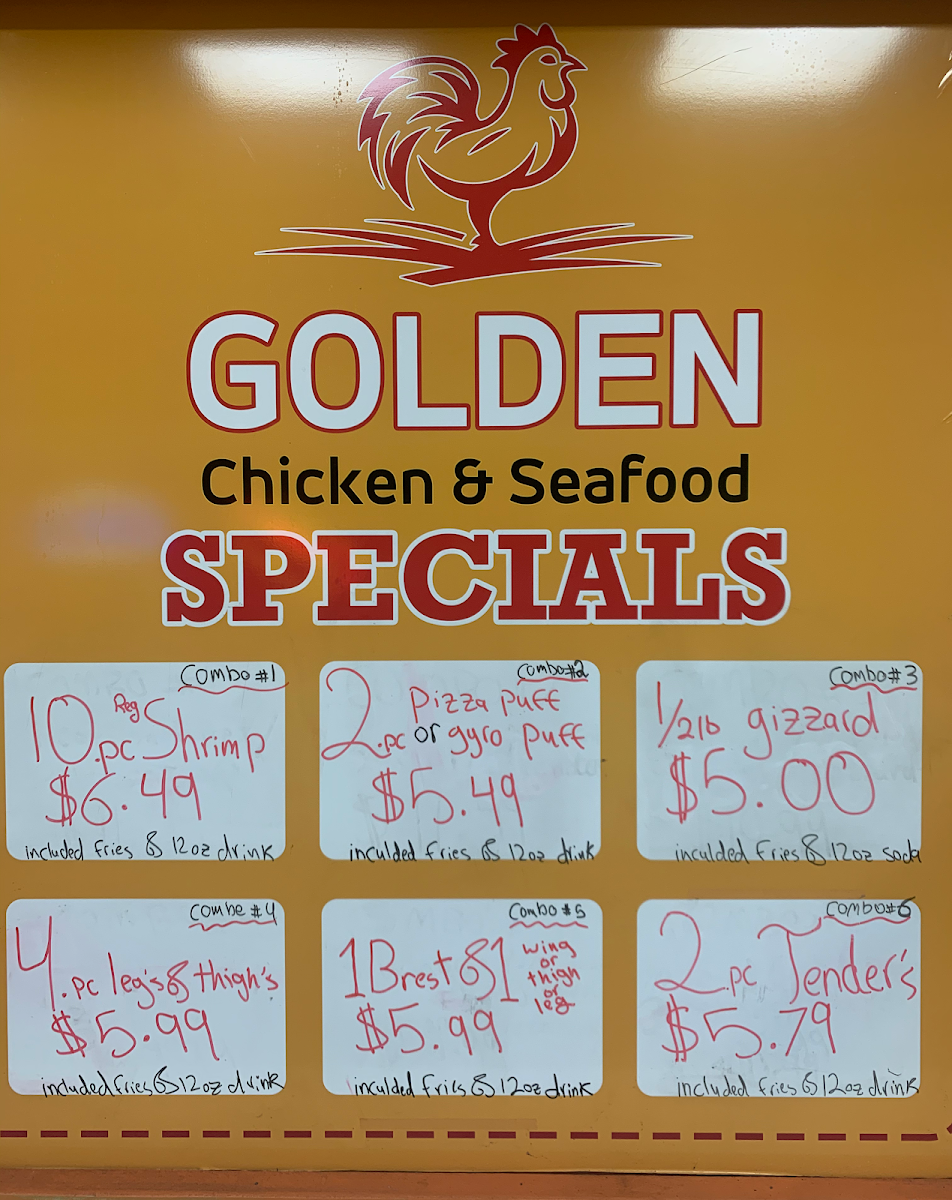 GOLDEN
Chicken & Seafood
SPECIALS
Combo #1
10.pc Reg Shrimp
$6.49
included fries & 12oz drink
Combo #2
2.pc Pizza Puff
or gyro Puff
$5.49
inculded fries & 12oz drink
Combo #3
1/2lb gizzard
$5.00
inculded fries & 12oz soda
Combe #4
4.pc leg's & thigh's
$5.99
included fries & 12oz drink
Combo #5
1 Brest & 1 wing
or
thigh
or
leg
$5.99
inculded fries & 12oz drink
Combo #6
2.pc Tender's
$5.79
included fries & 12oz drink